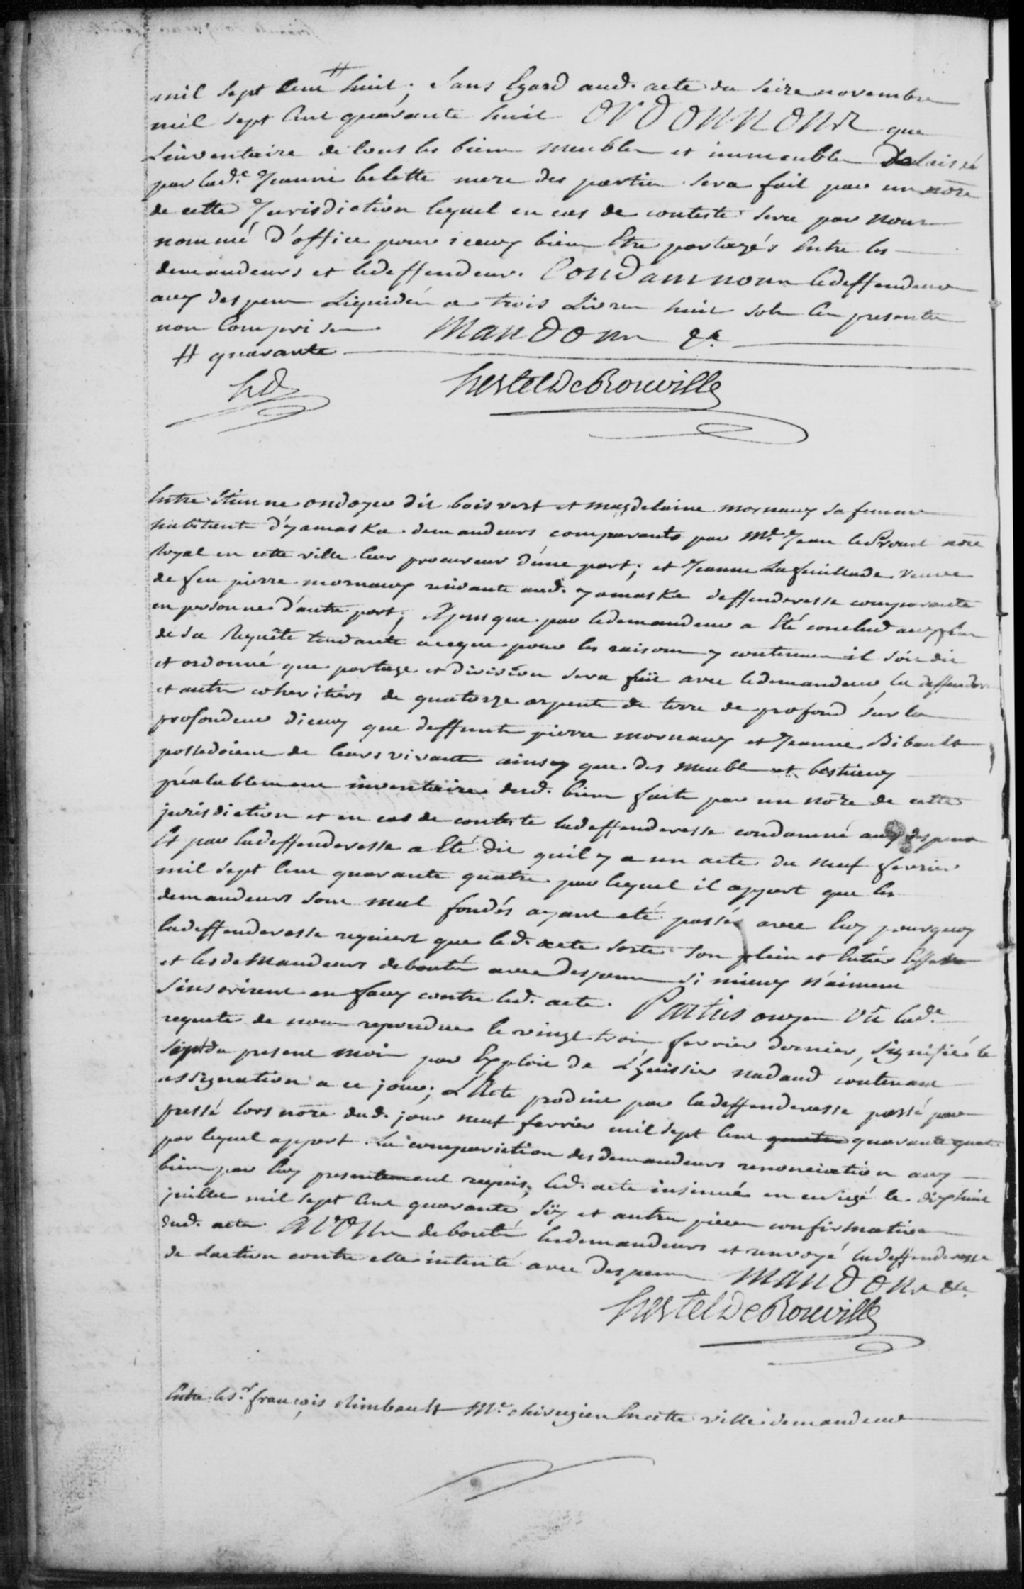 mil sept Cent # huit; Sans Egard aud. acte du seize novembre
mil sept Cent quarante huit ORDONNONS que
Linventaire de tous les biens meubles et immeubles Delaissés
par lad.e Jeanne belette mere des parties sera fait par un no͞re
de cette Jurisdiction lequel en cas de conteste sera par Nous
nommé d'office pour iceux bien Etre partagés Entre les
demandeurs et ledeffendeur. Condamnons ledeffendeur
aux despens Liquidés a trois Livres huit sols Ces presentes
non Comprises Mandons &a
# quarante
hD
hertel De Rouville
Entre Etienne ondoyer dit boisvert et magdelaine mornaux sa femme
habitant d'yamaska demandeurs comparants par Me. Jean le Proust no͞re
Royal en cette ville leur procureur d'une part; et Jeanne Lafeuillade veuve
de feu pierre mornaux residante aud. yamaska deffenderesse comparante
en personne d'autre part; apres que par ledemandeur a Eté conclud aux fins
de sa Requête tendante aceque pour les raisons y contenues il soit dit
et ordonné que partage et division sera fait avec ledemandeur, la deffenderesse
et autres coheritiers de quatorze arpents de terre de profond sur la
profondeur d'iceux que deffunts pierre mornaux et Jeanne Bibault
possedoient de leurs vivants ainsy que des meubles et bestiaux
préalablement inventaire desd. biens faite par un no͞re de cette
jurisdiction et en cas de conteste ladeffenderesse condamné aux despens
Et par ladeffenderesse a Eté dit quil y a un acte du neuf fevrier
mil sept Cent quarante quatre par lequel il appert que les
demandeurs sont mal fondés ayant eté passé avec luy pourquoy
ladeffenderesse requiert que led. acte sorte son plein et Entier Effet
et les deMandeurs deboutés avec despens si mieux n'aiment
s'inscrirent en faux contre led. acte. Parties ouyes Vû lad.e
requete de nous repondue le vingt trois fevrier dernier, signifiée le
sept du present mois par Exploit de L'huissier nadaud contenant
assignation a ce jour; L'Acte produit par ladeffenderesse passé par
pressé lors no͞re dud. jour neuf fevrier mil sept Cent quatre quarante quatre
par lequel appert la comparution des demandeurs renonciation aux
biens par luy presentement requis, led. acte insinué en en le dixhuit
juillet mil sept Cent quarante six et autres pieces confirmatives
dud. acte AVONS debouté lesdemandeurs et renvoyé ladeffenderesse
de Laction contre elle intenté avec despens MANDONS &a.
hertel De Rouville
Entre le Sr. françois Simbault Me chirugien En cette ville demandeur